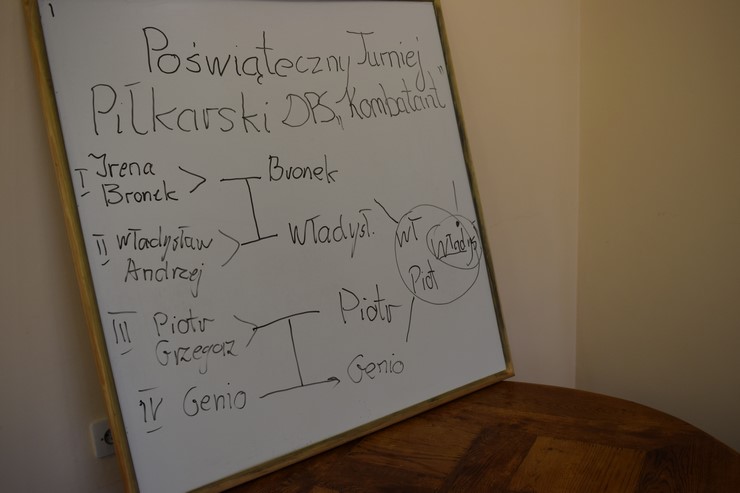 Poświąteczny Turniej
Piłkarski DPS „Kombatant"
I Irena
Bronek
Bronek
II Władysław
Andrzej
Władysł.
Wł
Władysł
Piot
III Piotr
Grzegorz
Piotr
IV Genio
Genio